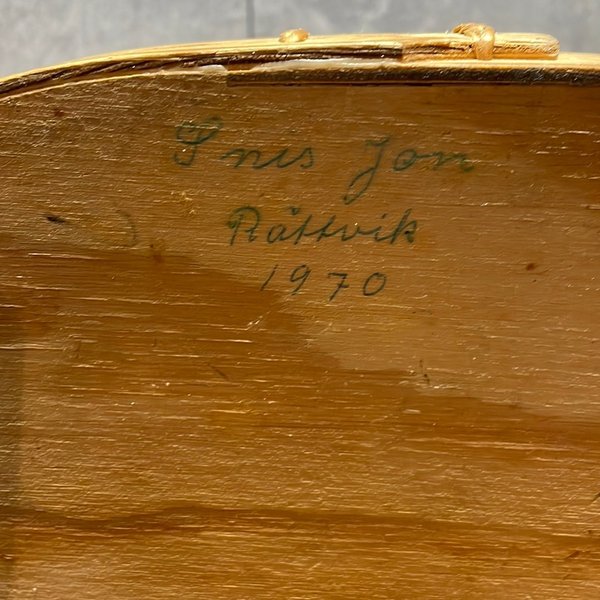 Snis Jon
Rättvik
1970